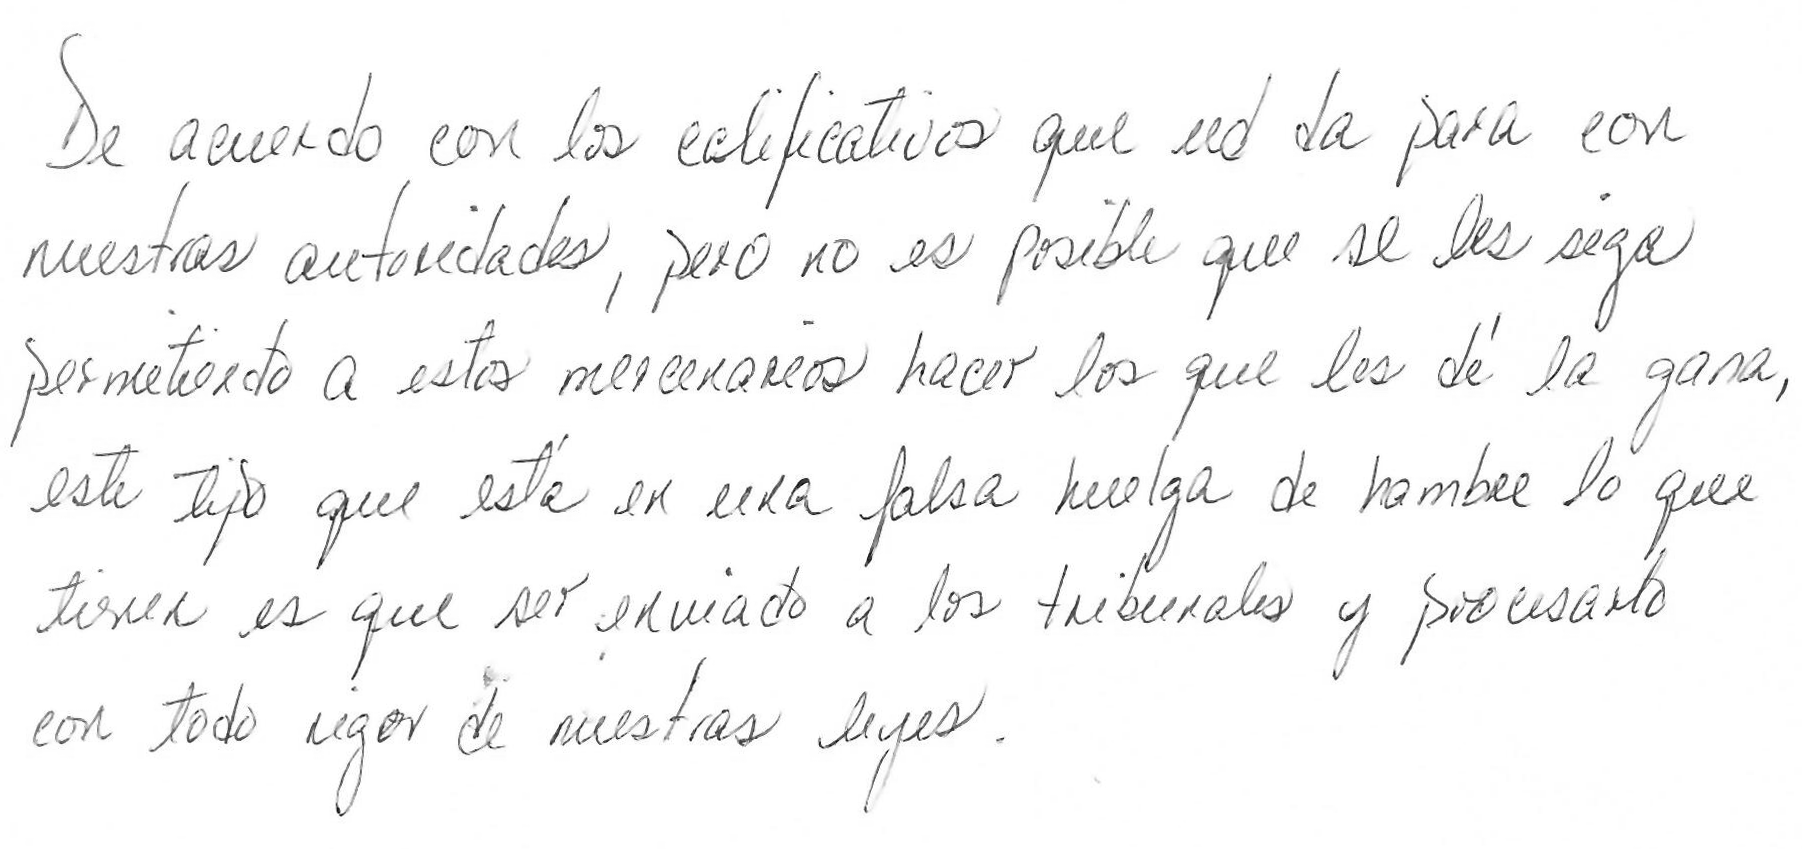 De acuerdo con los calificativos que ud da para con
nuestras autoridades, pero no es posible que se les siga
permitiendo a estos mercenarios hacer los que les dé la gana,
este tipo que está en una falsa huelga de hambre lo que
tienen es que ser enviado a los tribunales y procesarlo
con todo rigor de nuestras leyes.